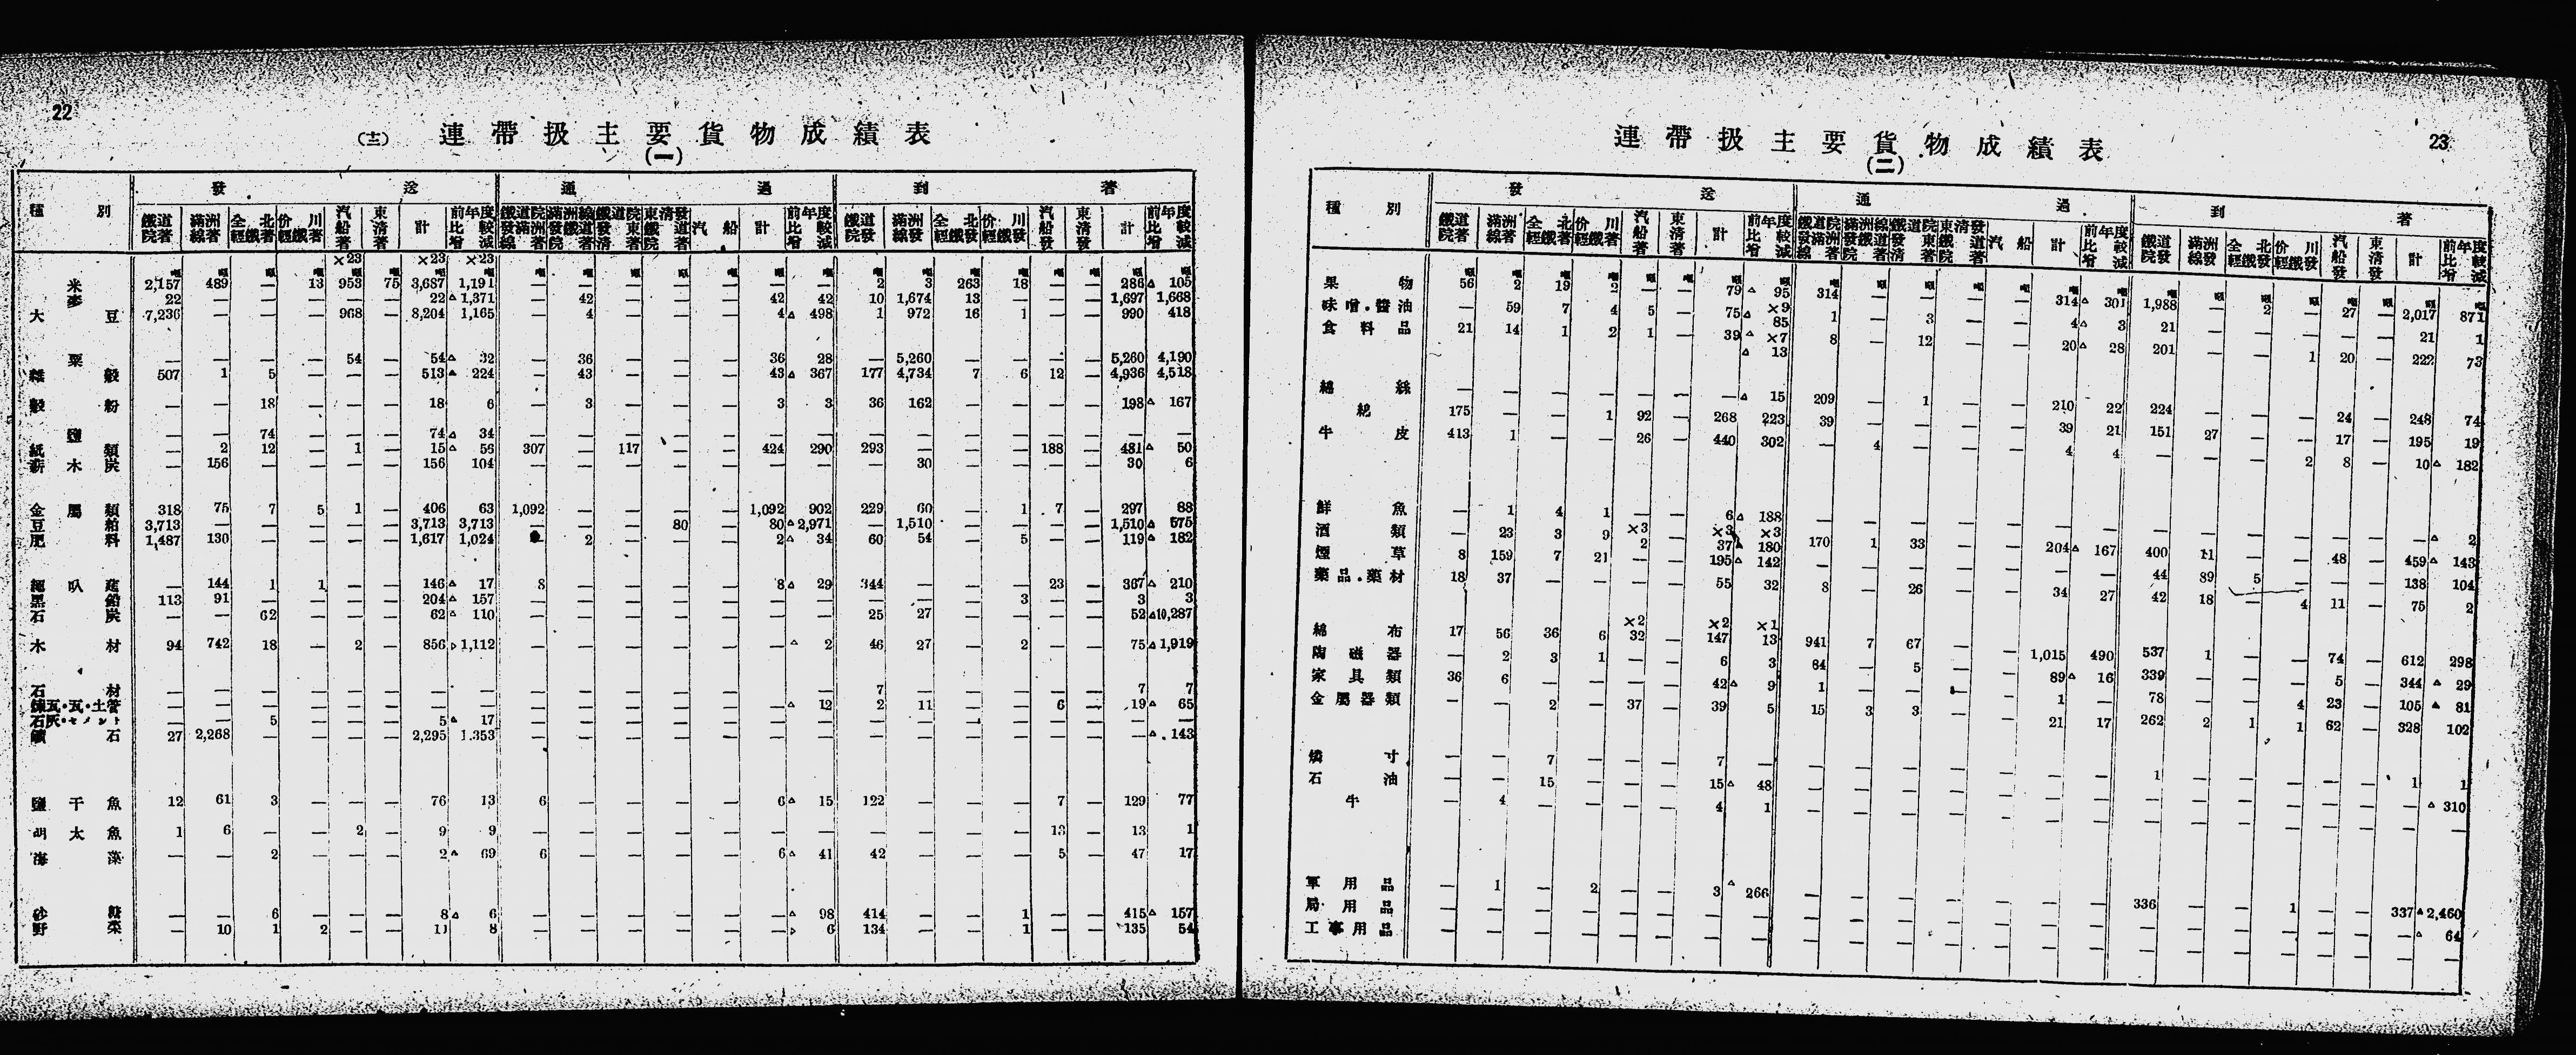 22
(十三) 連帶扱主要貨物成績表
(一)
種別 發送 通過 到著
鐵道院著 滿洲線著 全北輕鐵著 价川輕鐵著 汽船著 東清著 計 前年度比較增減 鐵道院發滿洲線著 滿洲線發鐵道院著 鐵道院發東清著 東清發鐵道院著 汽船 計 前年度比較增減 鐵道院發 滿洲線發 全北輕鐵發 价川輕鐵發 汽船發 東清發 計 前年度比較增減
×23 ×23 ×23
米 2,157 489 — 13 953 75 3,687 1,191 — — — — — — — 2 3 263 18 — — 286 △105
麥 22 — — — — — 22 △1,371 — 42 — — — 42 42 10 1,674 13 — — — 1,697 1,668
大豆 7,236 — — — 968 — 8,204 1,165 — 4 — — — 4 △498 1 972 16 1 — — 990 418
粟 — — — — 54 — 54 △32 — 36 — — — 36 28 — 5,260 — — — — 5,260 4,190
雜穀 507 1 5 — — — 513 △224 — 43 — — — 43 △367 177 4,734 7 6 12 — 4,936 4,518
穀粉 — — 18 — — — 18 6 — 3 — — — 3 3 36 162 — — — — 198 △167
鹽 — — 74 — — — 74 △34 — — — — — — — — — — — — — — —
紙類 — 2 12 — 1 — 15 △56 307 — 117 — — 424 290 293 — — — 188 — 481 △50
薪木炭 — 156 — — — — 156 104 — — — — — — — — 30 — — — — 30 6
金屬類 318 75 7 5 1 — 406 63 1,092 — — — — 1,092 902 229 60 — 1 7 — 297 88
豆粕 3,713 — — — — — 3,713 3,713 — — — 80 — 80 △2,971 — 1,510 — — — — 1,510 △575
肥料 1,487 130 — — — — 1,617 1,024 — 2 — — — 2 △34 60 54 — 5 — — 119 △182
繩叺莚 — 144 1 1 — — 146 △17 8 — — — — 8 △29 344 — — — 23 — 367 △210
黑鉛 113 91 — — — — 204 △157 — — — — — — — — — — 3 — — 3 3
石炭 — — 62 — — — 62 △110 — — — — — — — 25 27 — — — — 52 △10,287
木材 94 742 18 — 2 — 856 △1,112 — — — — — △2 46 27 — 2 — — 75 △1,919
石材 — — — — — — — — — — — — — — — 7 — — — — — 7 7
煉瓦・瓦・土管 — — — — — — — — — — — — — — △12 2 11 — — 6 — 19 △65
石灰・セメント — — 5 — — — 5 △17 — — — — — — — — — — — — — — —
鑛石 27 2,268 — — — — 2,295 1,353 — — — — — — — — — — — — — — △143
鹽干魚 12 61 3 — — — 76 13 6 — — — — 6 △15 122 — — — 7 — 129 77
明太魚 1 6 — — 2 — 9 9 — — — — — — — — — — — 13 — 13 1
海藻 — — 2 — — — 2 △69 6 — — — — 6 △41 42 — — — 5 — 47 17
砂糖 — — 6 — — — 8 △6 — — — — — — △98 414 — — 1 — — 415 △157
野菜 — 10 1 2 — — 11 8 — — — — — — △6 134 — — 1 — — 135 54
連帶扱主要貨物成績表
(二)
23
種別 發送 通過 到著
鐵道院著 滿洲線著 全北輕鐵著 价川輕鐵著 汽船著 東清著 計 前年度比較增減 鐵道院發滿洲線著 滿洲線發鐵道院著 鐵道院發東清著 東清發鐵道院著 汽船 計 前年度比較增減 鐵道院發 滿洲線發 全北輕鐵發 价川輕鐵發 汽船發 東清發 計 前年度比較增減
果物 56 2 19 2 — — 79 △95 314 — — — — 314 △301 1,988 — 2 — 27 — 2,017 871
×9
味噌・醬油 — 59 7 4 5 — 75 △85 1 — 3 — — 4 △3 21 — — — — — 21 1
×7
食料品 21 14 1 2 1 — 39 △13 8 — 12 — — 20 △28 201 — — 1 20 — 222 73
綿絲 — — — — — — — △15 209 — 1 — — 210 22 224 — — — 24 — 248 74
綿 175 — — 1 92 — 268 223 39 — — — — 39 21 151 27 — — 17 — 195 19
牛皮 413 1 — — 26 — 440 302 — 4 — — — 4 4 — — — 2 8 — 10 △182
鮮魚 — 1 4 1 — — 6 △188 — — — — — — — — — — — — — — △2
×3 ×3 ×3
酒類 — 23 3 9 2 — 37 △180 170 1 33 — — 204 △167 400 11 — — 48 — 459 △143
煙草 8 159 7 21 — — 195 △142 — — — — — — — 44 89 5 — — — 138 104
藥品・藥材 18 37 — — — — 55 32 8 — 26 — — 34 27 42 18 — 4 11 — 75 2
×2 ×2 ×1
綿布 17 56 36 6 32 — 147 13 941 7 67 — — 1,015 490 537 1 — — 74 — 612 298
陶磁器 — 2 3 1 — — 6 3 84 — 5 — — 89 △16 339 — — — 5 — 344 △29
家具類 36 6 — — — — 42 △9 1 — — — — 1 — 78 — — 4 23 — 105 △81
金屬器類 — — 2 — 37 — 39 5 15 3 3 — — 21 17 262 2 1 1 62 — 328 102
燐寸 — — 7 — — — 7 — — — — — — — — 1 — — — — — 1 1
石油 — — 15 — — — 15 △48 — — — — — — — — — — — — — — △310
牛 — 4 — — — — 4 1 — — — — — — — — — — — — — — —
軍用品 — 1 — 2 — — 3 △266 — — — — — — — 336 — — 1 — — 337 △2,460
局用品 — — — — — — — — — — — — — — — — — — — — — — △64
工事用品 — — — — — — — — — — — — — — — — — — — — — — —